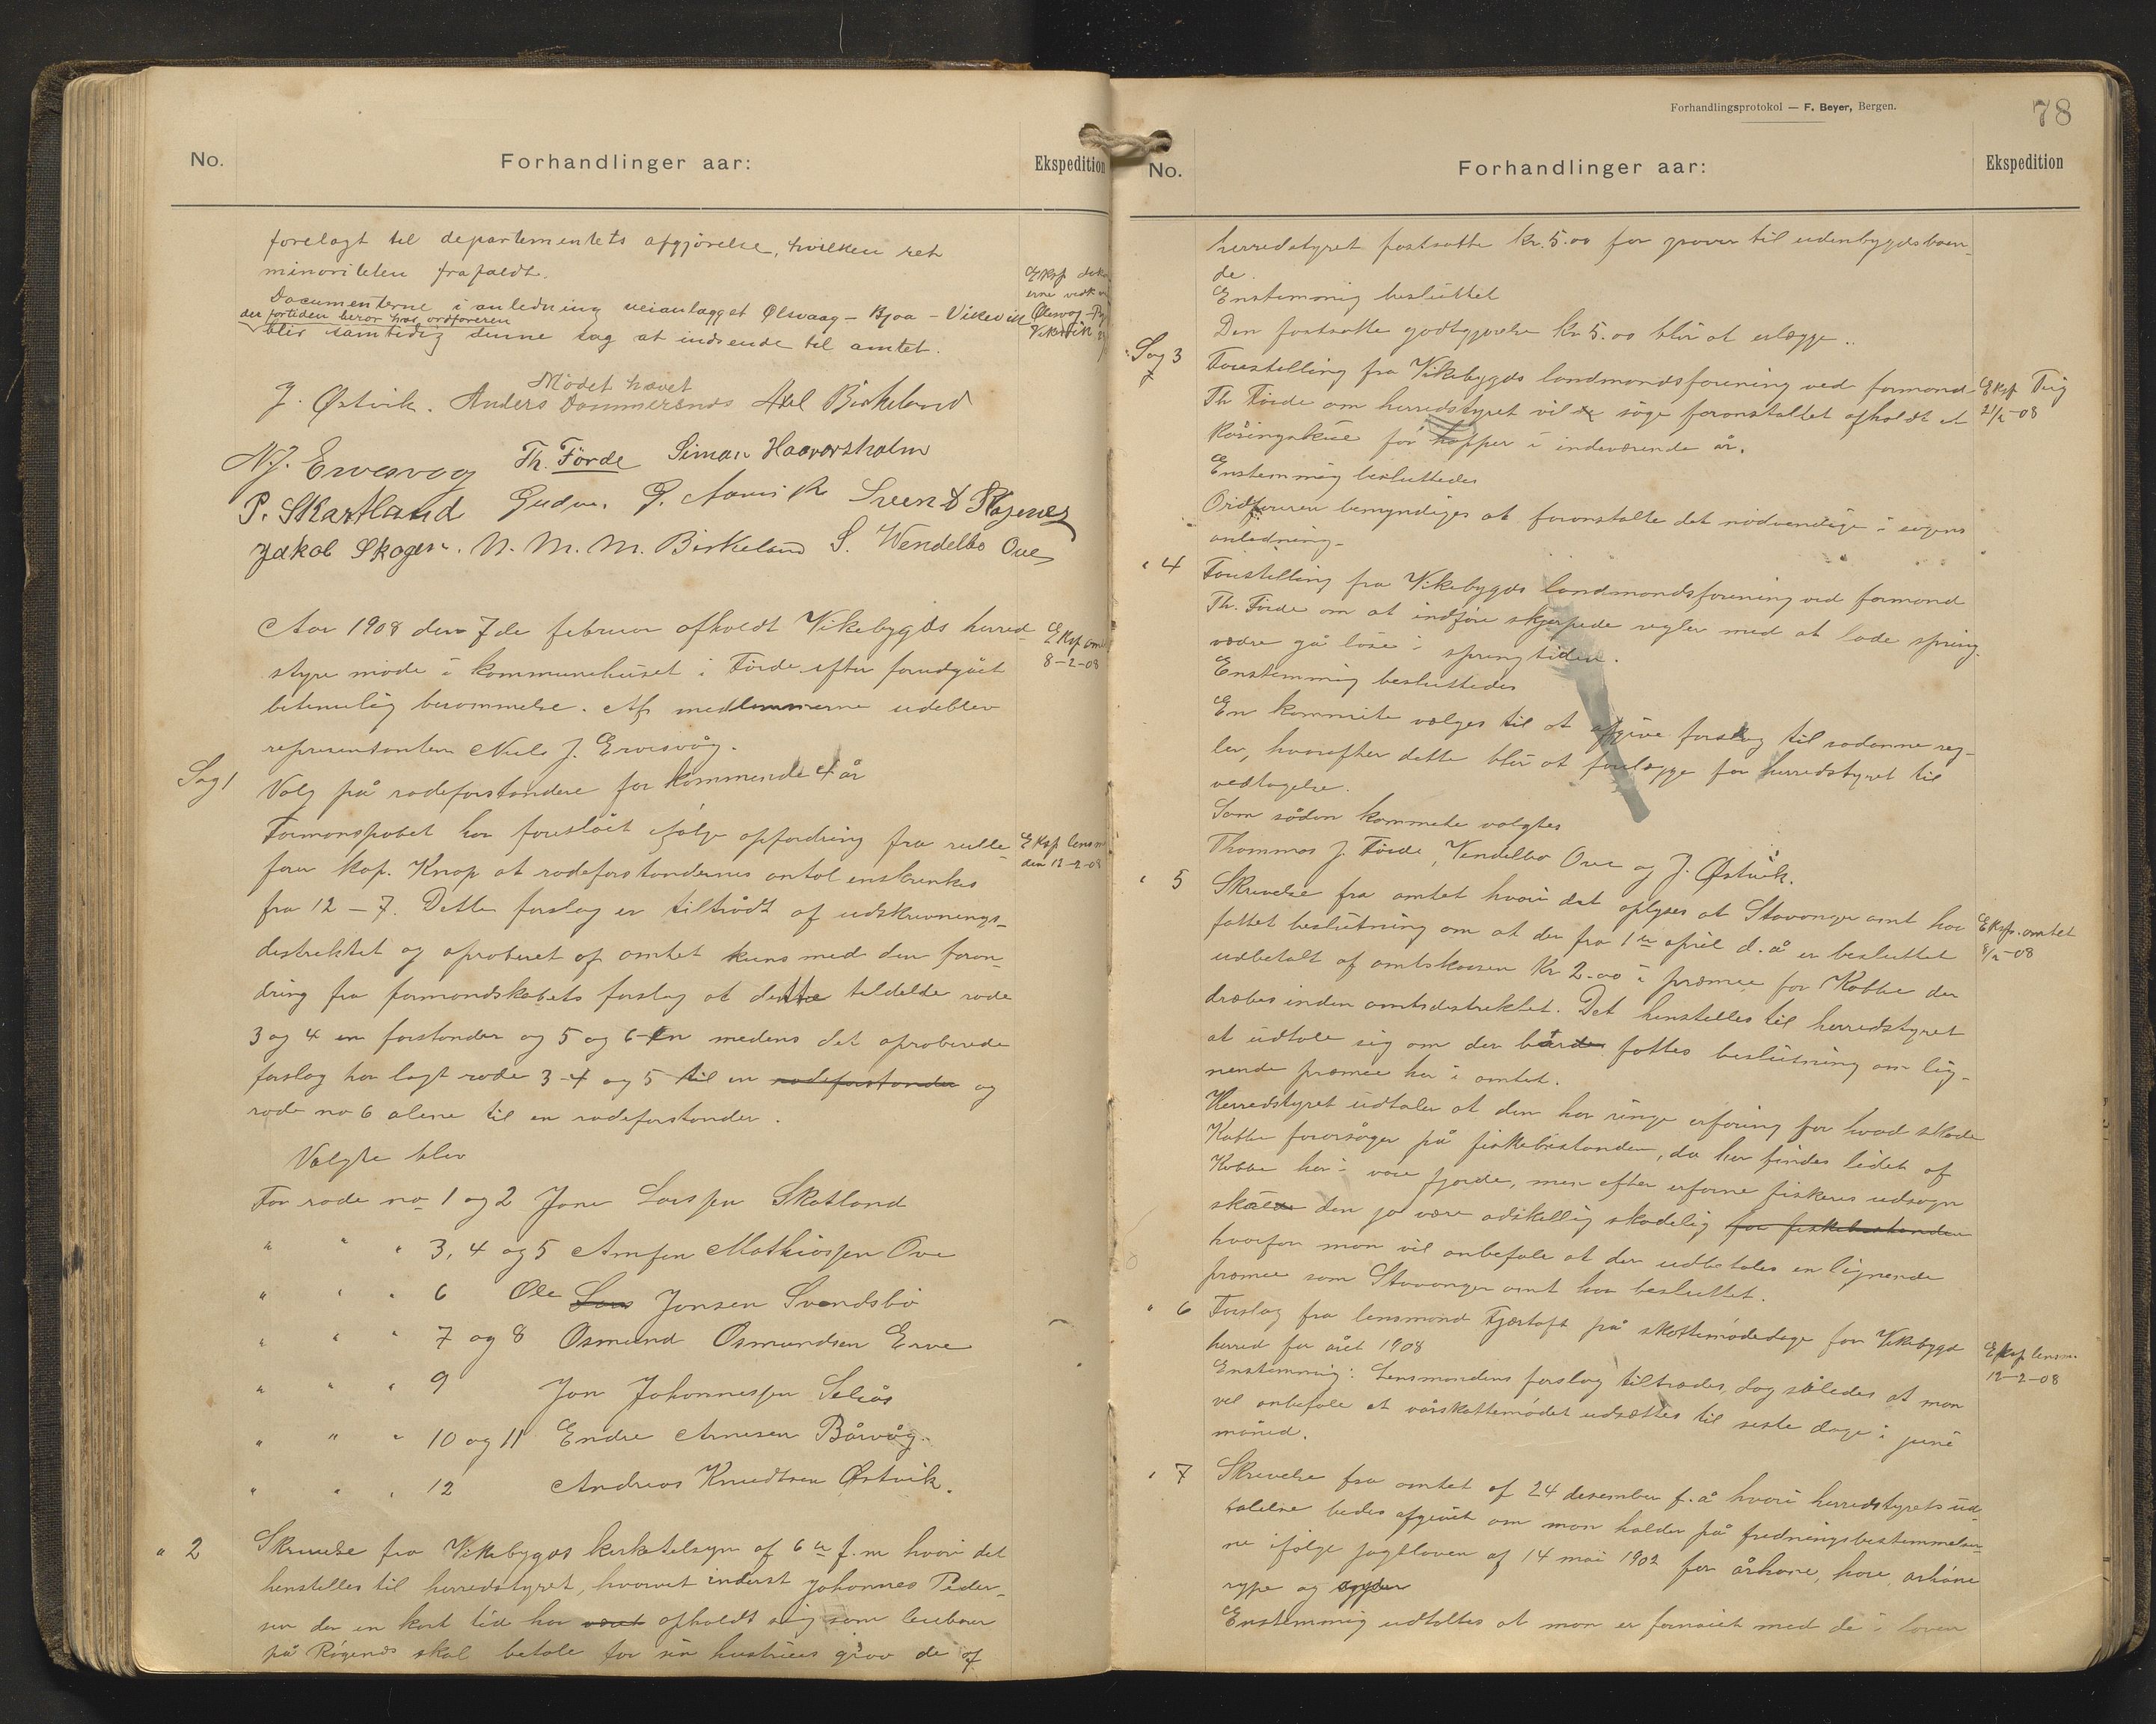 No.
Forhandlinger aar:
Ekspedition
forelagt til departementets afgjørelse, hvilken ret
minoriteten frafaldt.
Documenterne i anledning veianlægget Ølsvaag - Bjoa - Vikevik
der fortiden beror hos ordføreren
blir samtidig denne sag at indsende til amtet.
Ølsvog
Vikevik
Mødet hævet
J. Østvik. Anders Dommersnes Axel Birkeland
N. J. Ervesvog Th. Førde Simon Haavorsholm
P. Skartland Gudm. G. Svend
Jakob Skogen. N. M. M. Birkeland S. Wendelbo Ove
Aar 1908 den 7de februar afholdt Vikebygds herred-
styre møde i kommunehuset i Førde efter forudgået
betimelig berammelse. Af medlemmerne udeblev
representanten Niels J. Ervesvåg.
Eksp amt
8-2-08
Sag 1
Valg på rodeforstandere for kommende 4 år
Formanskabet har foreslået ifølge opfordring fra rulle-
fører kap. Knap at rodeforstandernes antal enskrenkes
fra 12 - 7. Dette forslag er tiltrådt af udskrivnings-
destriktet og aproberet af amtet kuns med den foran-
dring fra formandskabets forslag at dette tildelte rode
3 og 4 en forstander og 5 og 6 en medens det aproberede
forslag har lagt rode 3-4 og 5 til en rodeforstander og
rode no 6 alene til en rodeforstander.
Eksp lensm
den 12-2-08
Valgte blev
For rode no 1 og 2 Jone Larssen Skatland
" " " 3, 4 og 5 Arnfin Mathiassen Ove
" " " 6 Ole Lars Jonsen Svendsbø
" " " 7 og 8 Osmund Osmundsen Erve
" " " 9 Jon Johannessen Seliås
" " " 10 og 11 Endre Arnesen Bårvåg.
" " " 12 Andreas Knudtsen Østvik.
" 2
Skrivelse fra Vikebygds kirketilsyn af 6te f.m hvori det
henstilles til herredstyret, hvorvit inderst Johannes Peder-
sen der en kort tid har været opholdt sig som leieboer
på Røgenes skal betale for sin hustrues grav de af
Forhandlingsprotokol — F. Beyer, Bergen.
78
No.
Forhandlinger aar:
Ekspedition
herredstyret fastsatte kr. 5.00 for graver til udenbygdsboen-
de.
Enstemmig besluttet
Den fastsatte godtgjørelse kr 5.00 blir at erlægge.
Sag 3
Forestilling fra Vikebygds landmandsforening ved formand
Th Førde om herredstyret vilde søge foranstaltet afholdt et
Kåringskue for hopper i indeværende år.
Enstemmig besluttedes
Ordføreren bemyndiges at foranstalte det nødvendige i sagens
anledning.
Eksp
21/2-08
" 4
Forestilling fra Vikebygds landmandsforening ved formand
Th. Førde om at indføre skjerpede regler med at lade spring-
vædre gå løse i springtiden.
Enstemmig besluttedes
En kommite vælges til at afgive forslag til sådanne reg-
ler, hvorefter dette blir at forelægge for herredstyret til
vedtagelse.
Som sådan kommete valgtes
Thommas J. Førde, Vendelbo Ove og J. Østvik.
" 5
Skrivelse fra amtet hvori det oplyses at Stavanger amt har
fattet beslutning om at der fra 1te april d. å er besluttet
udbetalt af amtskassen Kr 2.00 i præmie for Kobbe der
dræbes inden amtsdestriktet. Det henstilles til herredstyret
at udtale sig om der børde fattes beslutning om lig-
nende præmie her i amtet.
Eksp. amtet
8/2-08
Herredstyret udtaler at den har ringe erfaring for hvad skade
Kobbe forårsager på fiskebestanden, da her findes lidet af
Kobbe her i våre fjorde, men efter erfarne fiskeres udsagn
skulde den jo være adskellig skadelig for fiskebestanden
hvorfor man vil anbefale at der udbetales en lignende
præmie som Stavanger amt har besluttet.
" 6
Forslag fra lensmand Fjærtoft på skattemødedage for Vikebygd
herred for året 1908
Enstemmig: Lensmandens forslag tiltrædes, dog således at man
vil anbefale at vårskattemødet udsættes til siste dage i juni
måned.
Eksp lensm.
12-2-08
" 7
Skrivelse fra amtet af 24 desember f. å hvori herredstyrets ud-
talelse bedes afgivet om man holder på fredningsbestemmelser-
ne ifølge jagtloven af 14 mai 1902 for århane, hare, århøne
rype og ryper
Enstemmig udtaltes at man er fornøiet med de i loven